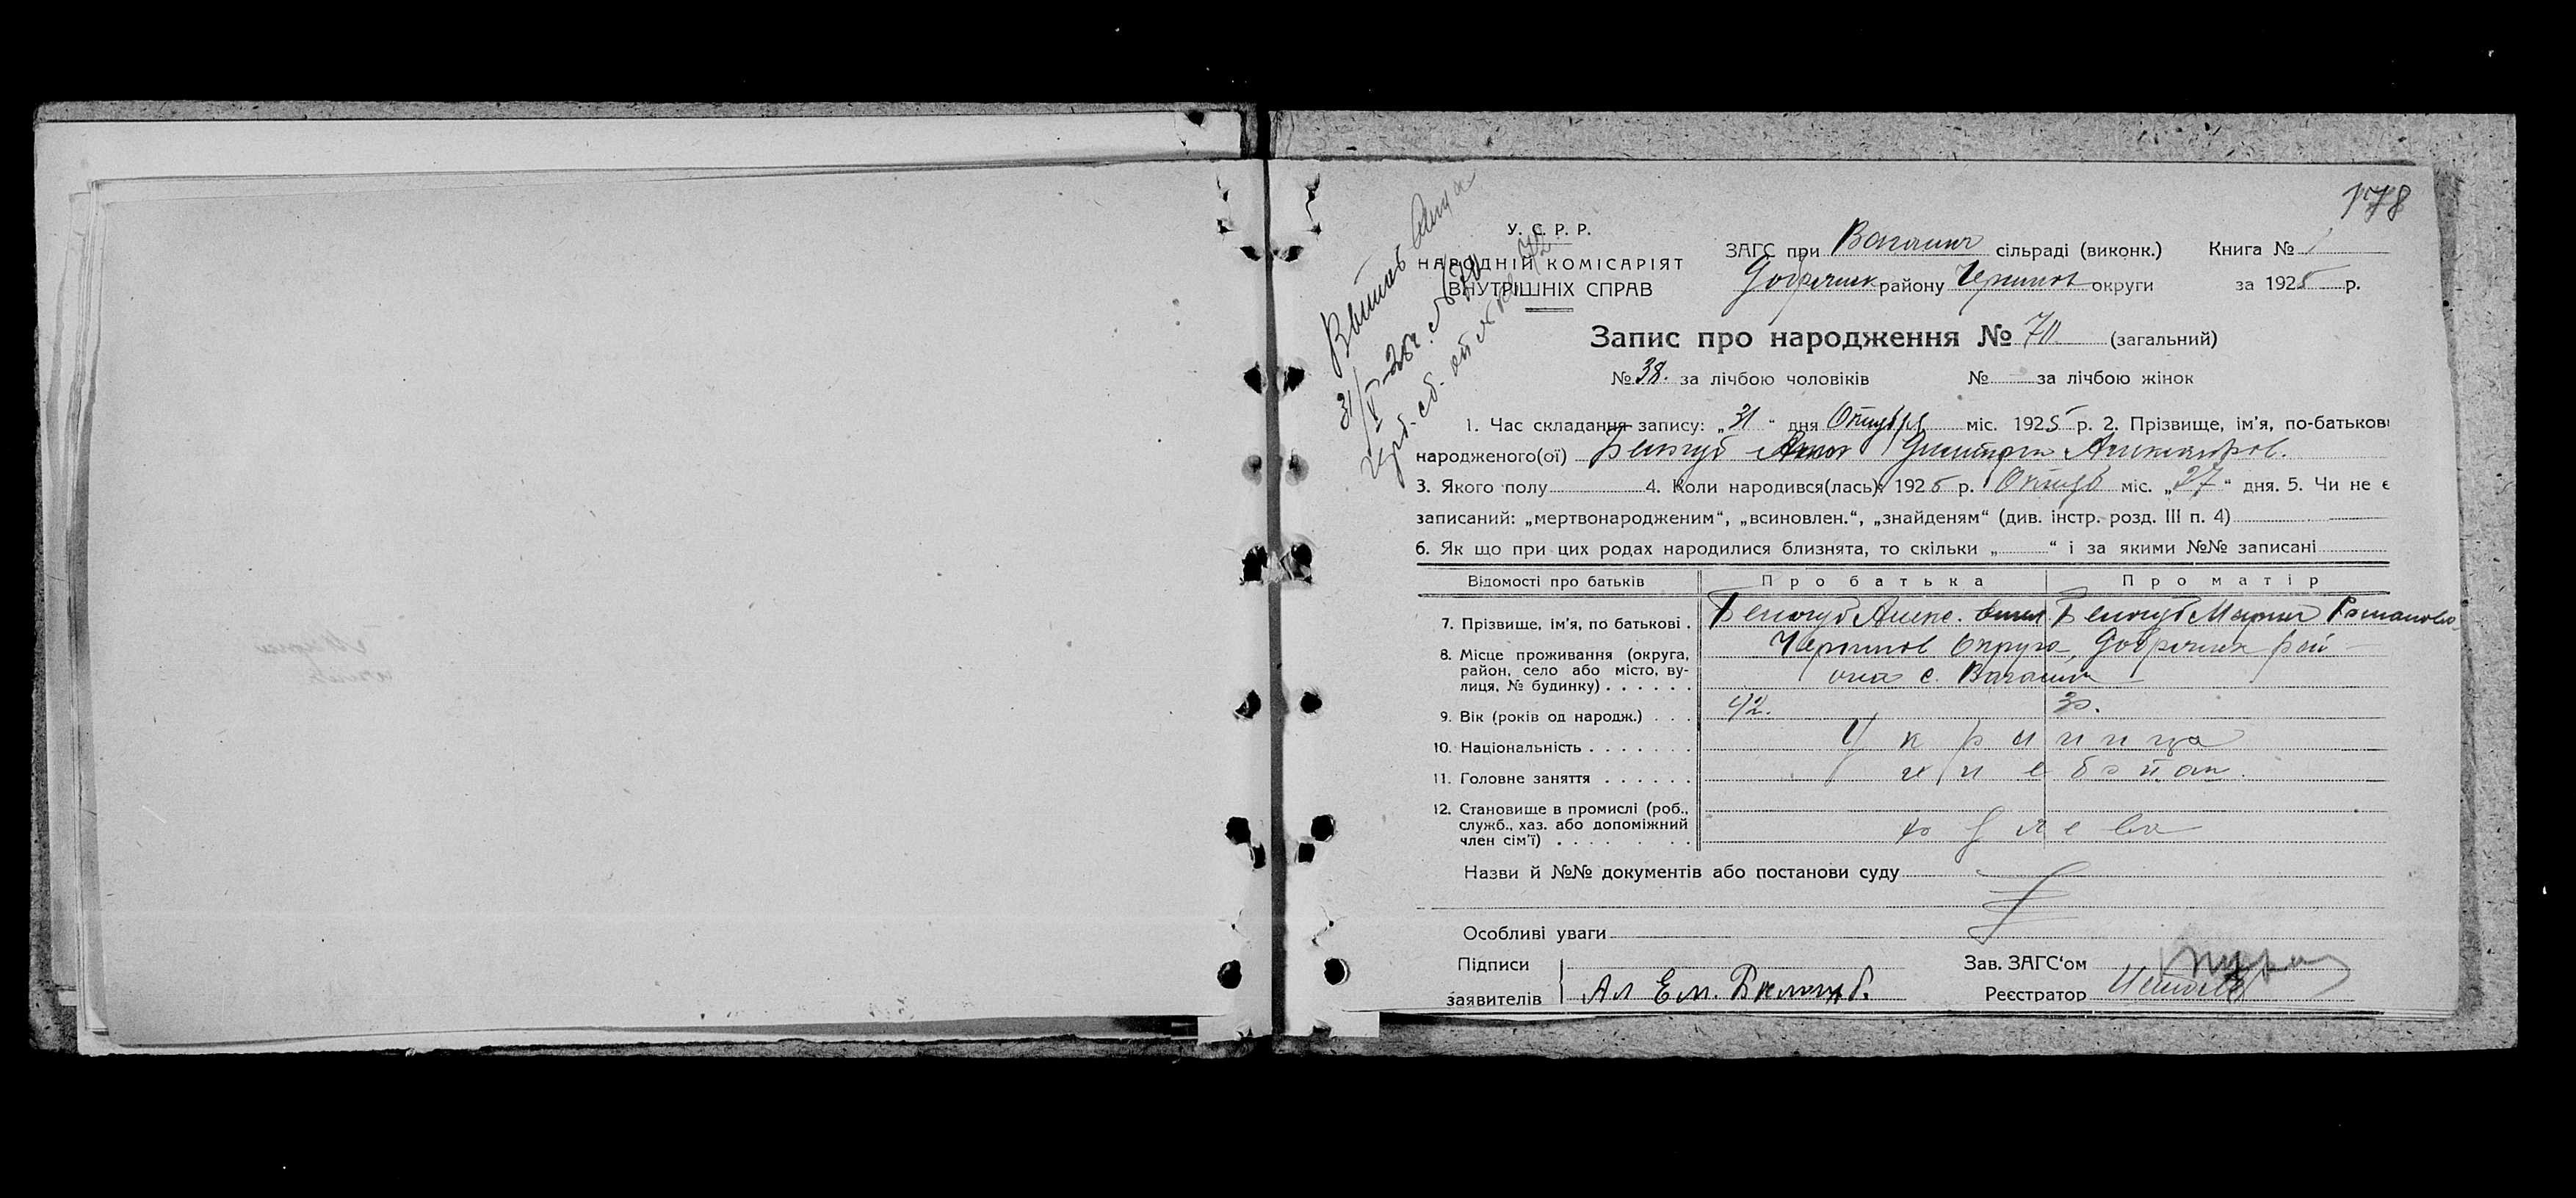 178
У. С. Р. Р.
НАРОДНІЙ КОМІСАРІЯТ
ВНУТРІШНІХ СПРАВ
ЗАГС при сільраді (виконк.) Книга №
району Чернигов округи за 1925 р.
Запис про народження № 70 (загальний)
№ 38. за лічбою чоловіків № за лічбою жінок
1. Час складання запису: „31“ дня Октября міс. 1925 р. 2. Прізвище, ім'я, по-батькові
народженого(ої) Белогуб Дмитрий Александров.
3. Якого полу 4. Коли народився(лась): 1925 р. Октяб міс. „27“ дня. 5. Чи не є
записаний: „мертвонародженим“, „всиновлен.“, „знайденям“ (див. інстр. розд. III п. 4)
6. Як що при цих родах народилися близнята, то скільки „ “ і за якими №№ записані
Відомості про батьків Про батька Про матір
7. Прізвище, ім'я, по батькові . Белогуб Алекс. Белогуб Мария Романовн
8. Місце проживання (округа, район, село або місто, вулиця, № будинку) . . . . . . Чернигов округа,
она с.
9. Вік (років од народж.) . . . 42. 30.
10. Національність . . . . . . . Украинца
11. Головне заняття . . . . . . хлебопаш.
12. Становище в промислі (роб., служб., хаз. або допоміжний член сім'ї) . . . . . . .
Назви й №№ документів або постанови суду
Особливі уваги
Підписи
заявителів Ал Ем. Белогуб.
Зав. ЗАГС‘ом
Реєстратор